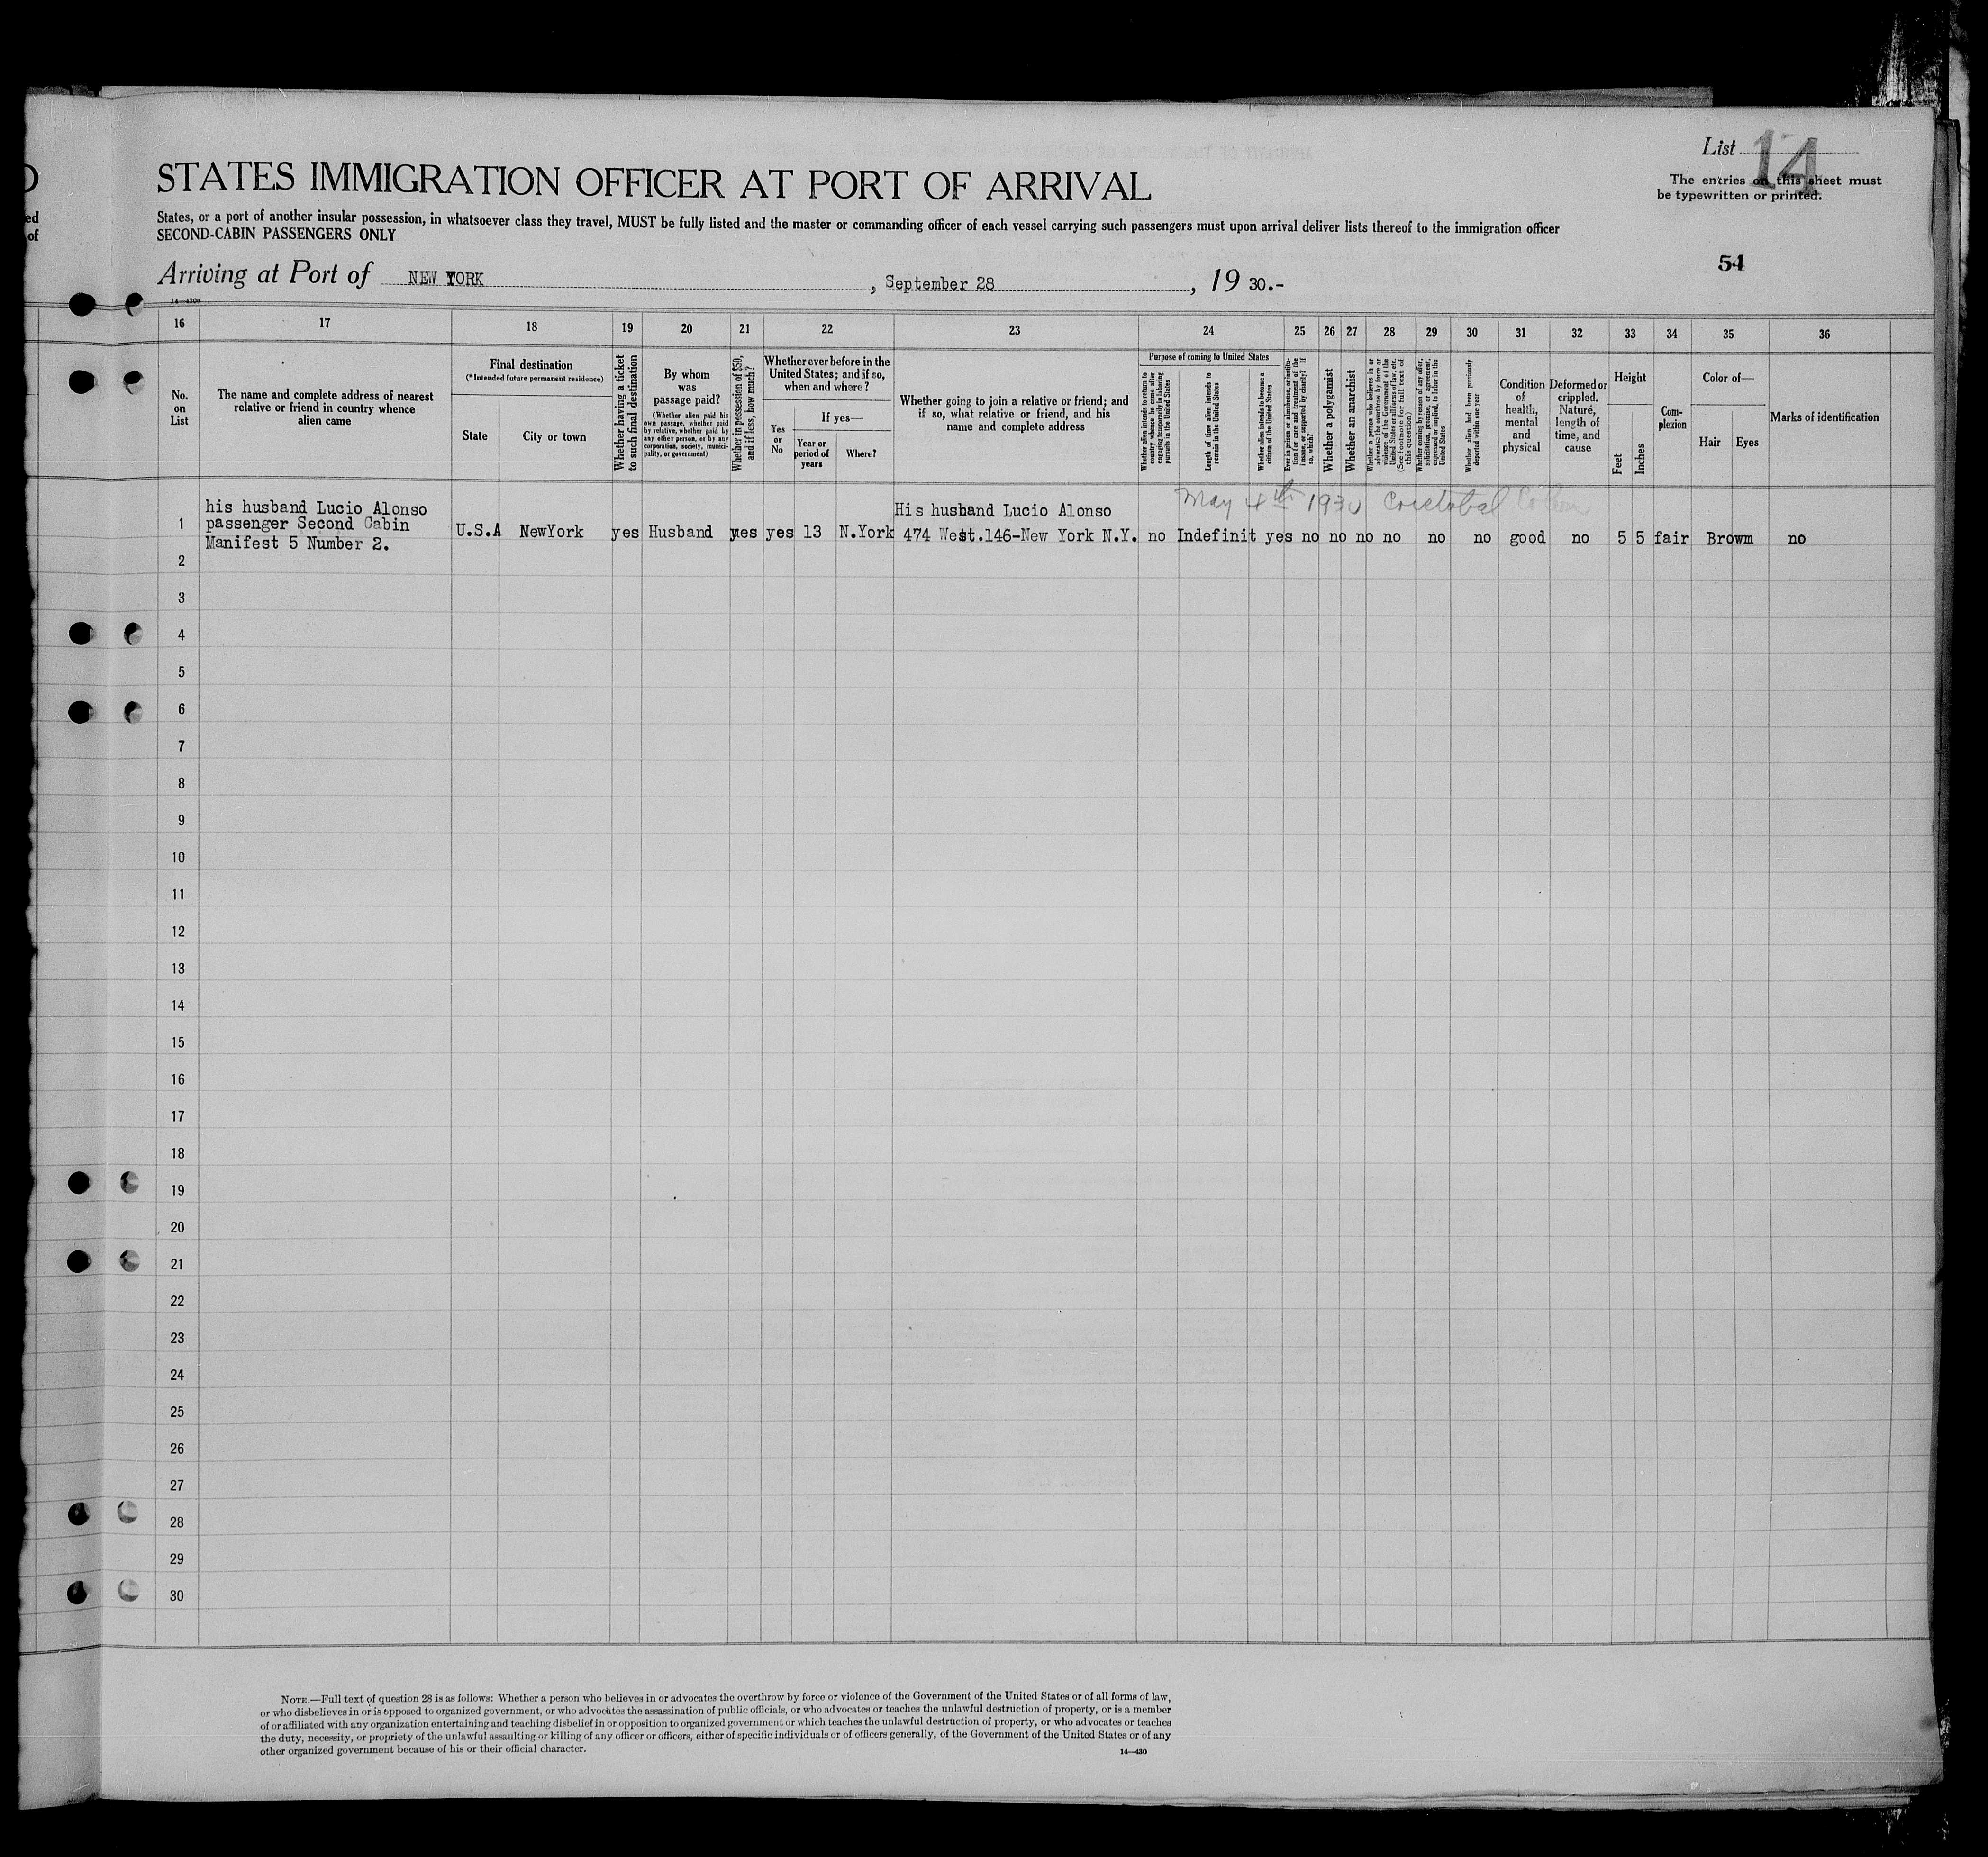 List 14
The entries on this sheet must
be typewritten or printed.
STATES IMMIGRATION OFFICER AT PORT OF ARRIVAL
ed
of
States, or a port of another insular possession, in whatsoever class they travel, MUST be fully listed and the master or commanding officer of each vessel carrying such passengers must upon arrival deliver lists thereof to the immigration officer
SECOND-CABIN PASSENGERS ONLY
54
Arriving at Port of NEW YORK, September 28, 19 30.-
14—430a
16 17 18 19 20 21 22 23 24 25 26 27 28 29 30 31 32 33 34 35 36
No.
on
List
The name and complete address of nearest
relative or friend in country whence
alien came
Final destination
(*Intended future permanent residence)
State
City or town
Whether having a ticket
to such final destination
By whom
was
passage paid?
(Whether alien paid his
own passage, whether paid
by relative, whether paid by
any other person, or by any
corporation, society, munici-
pality, or government)
Whether in possession of $50,
and if less, how much?
Whether ever before in the
United States; and if so,
when and where?
Yes
or
No
If yes—
Year or
period of
years
Where?
Whether going to join a relative or friend; and
if so, what relative or friend, and his
name and complete address
Purpose of coming to United States
Whether alien intends to return to
country whence he came after
engaging temporarily in laboring
pursuits in the United States
Length of time alien intends to
remain in the United States
Whether alien intends to become a
citizen of the United States
Ever in prison or almshouse, or institu-
tion for care and treatment of the
insane, or supported by charity? If
so, which?
Whether a polygamist
Whether an anarchist
Whether a person who believes in or
advocates the overthrow by force or
violence of the Government of the
United States or all forms of law, etc.
(See footnote for full text of
this question)
Whether coming by reason of any offer,
solicitation, promise, or agreement,
expressed or implied, to labor in the
United States
Whether alien had been previously
deported within one year
Condition
of
health,
mental
and
physical
Deformed or
crippled.
Nature,
length of
time, and
cause
Height
Feet
Inches
Com-
plexion
Color of—
Hair
Eyes
Marks of identification
May 4th 1930
his husband Lucio Alonso
passenger Second Cabin
Manifest 5 Number 2.
His husband Lucio Alonso
1 U.S.A NewYork yes Husband yes yes 13 N.York 474 West.146-New York N.Y. no Indefinit yes no no no no no no good no 5 5 fair Browm no
2
3
4
5
6
7
8
9
10
11
12
13
14
15
16
17
18
19
20
21
22
23
24
25
26
27
28
29
30
NOTE.—Full text of question 28 is as follows: Whether a person who believes in or advocates the overthrow by force or violence of the Government of the United States or of all forms of law,
or who disbelieves in or is opposed to organized government, or who advocates the assassination of public officials, or who advocates or teaches the unlawful destruction of property, or is a member
of or affiliated with any organization entertaining and teaching disbelief in or opposition to organized government or which teaches the unlawful destruction of property, or who advocates or teaches
the duty, necessity, or propriety of the unlawful assaulting or killing of any officer or officers, either of specific individuals or of officers generally, of the Government of the United States or of any
other organized government because of his or their official character.
14—430